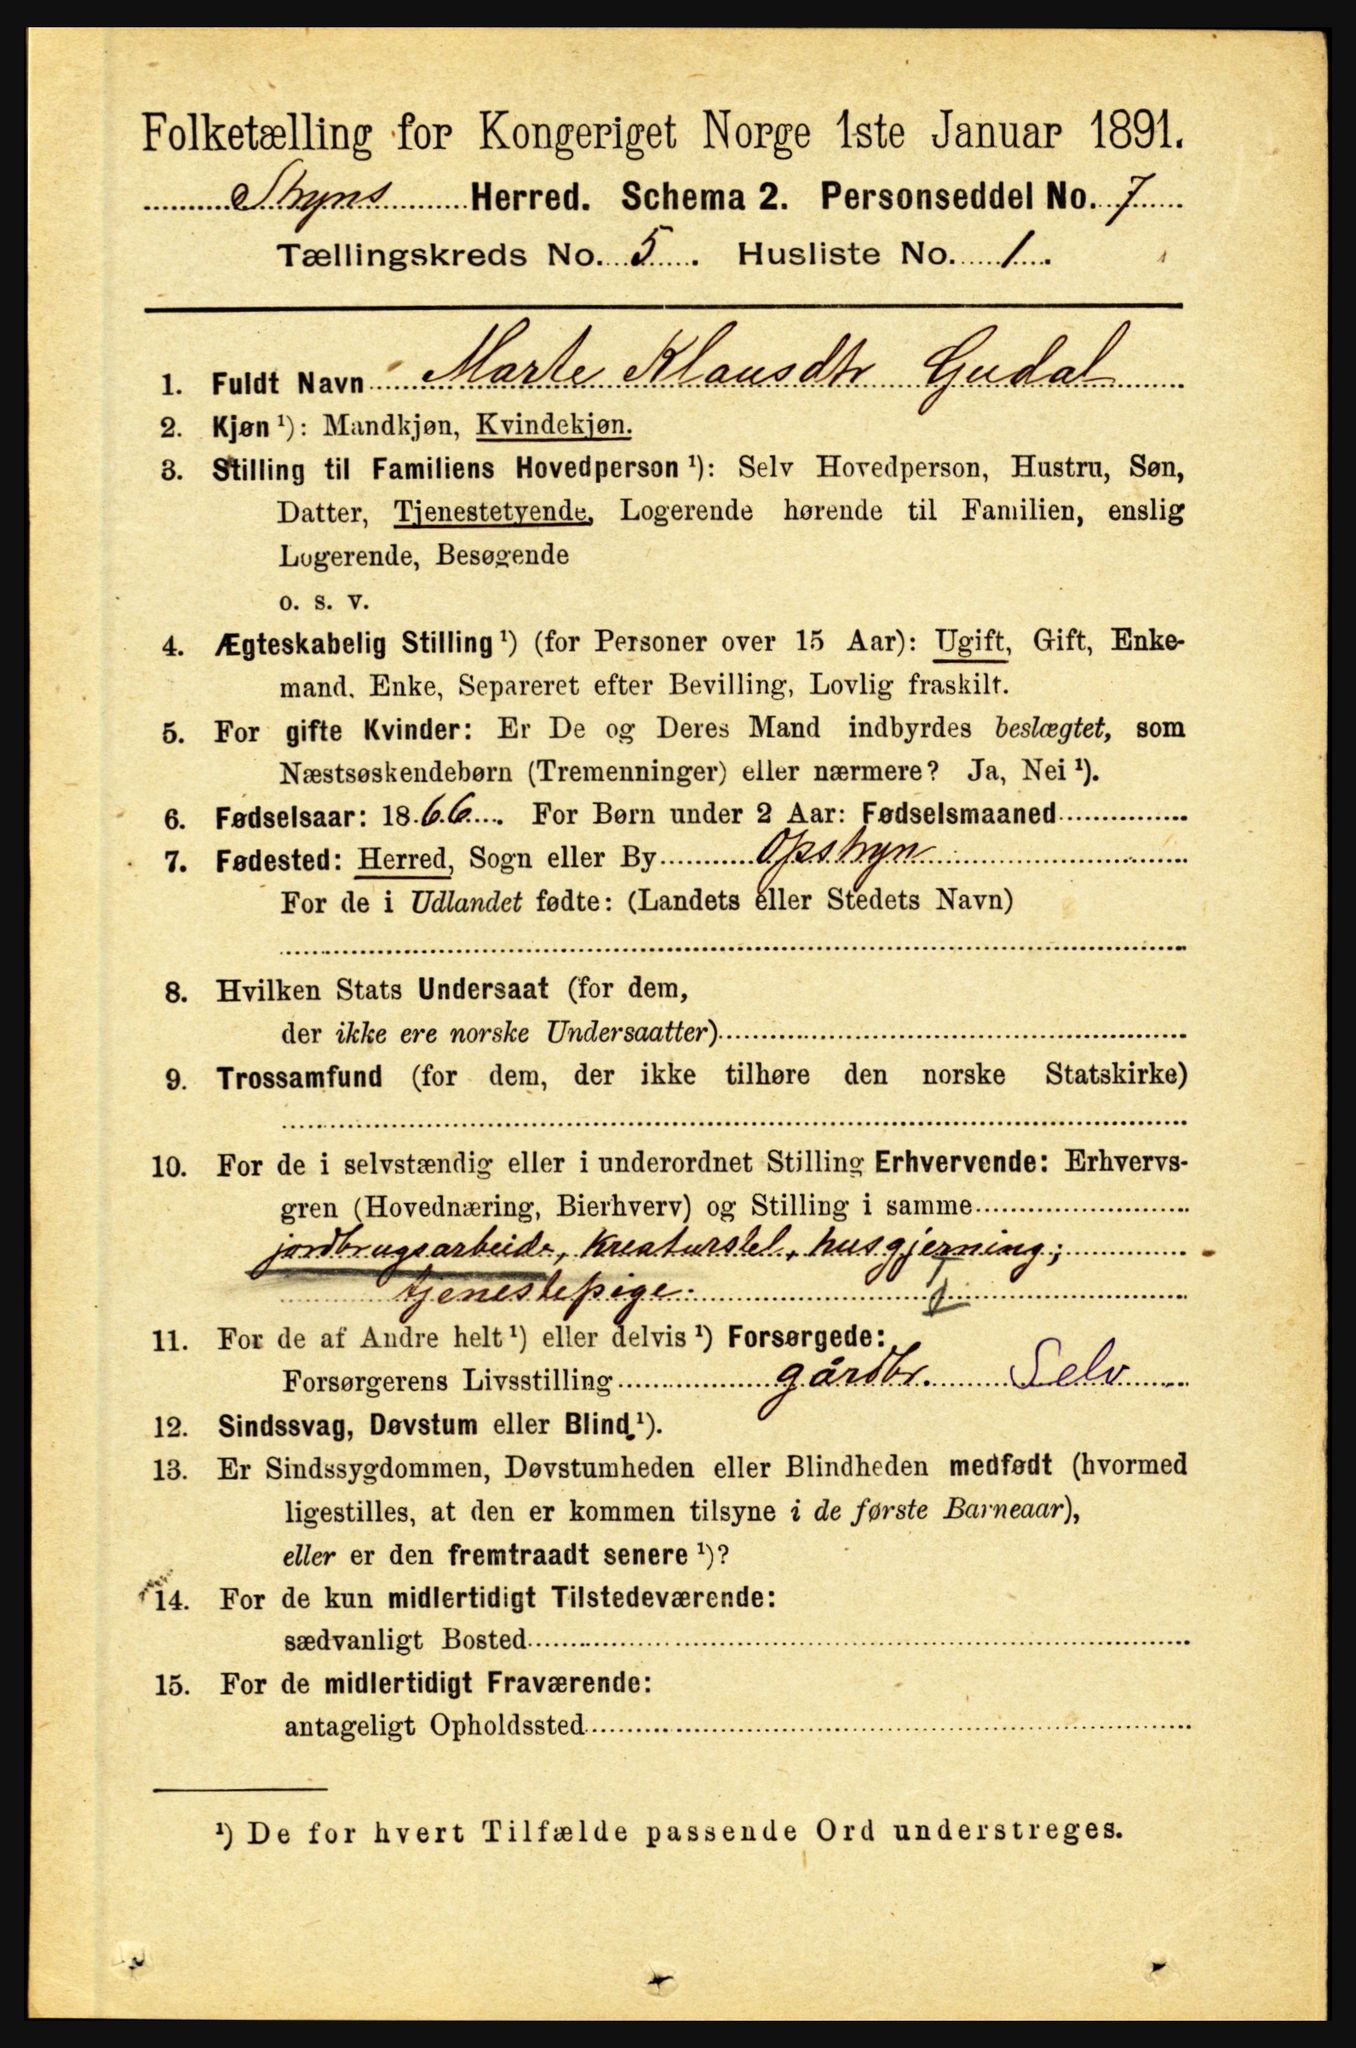 Folketælling for Kongeriget Norge 1ste Januar 1891.
Stryns Herred. Schema 2. Personseddel No. 7
Tællingskreds No. 5. Husliste No. 1.
1. Fuldt Navn Marte Klausdtr Gudal
2. Kjøn ¹): Mandkjøn, Kvindekjøn.
3. Stilling til Familiens Hovedperson ¹): Selv Hovedperson, Hustru, Søn,
Datter, Tjenestetyende, Logerende hørende til Familien, enslig
Logerende, Besøgende
o. s. v.
4. Ægteskabelig Stilling ¹) (for Personer over 15 Aar): Ugift, Gift, Enke-
mand, Enke, Separeret efter Bevilling, Lovlig fraskilt.
5. For gifte Kvinder: Er De og Deres Mand indbyrdes beslægtet, som
Næstsøskendebørn (Tremenninger) eller nærmere? Ja, Nei ¹).
6. Fødselsaar: 1866. For Børn under 2 Aar: Fødselsmaaned
7. Fødested: Herred, Sogn eller By Opstryn
For de i Udlandet fødte: (Landets eller Stedets Navn)
8. Hvilken Stats Undersaat (for dem,
der ikke ere norske Undersaatter)
9. Trossamfund (for dem, der ikke tilhøre den norske Statskirke)
10. For de i selvstændig eller i underordnet Stilling Erhvervende: Erhvervs-
gren (Hovednæring, Bierhverv) og Stilling i samme
jordbrugsarbeide, kreaturstel, husgjerning;
tjenestepige.
11. For de af Andre helt ¹) eller delvis ¹) Forsørgede:
Forsørgerens Livsstilling gårdbr. Selv
12. Sindssvag, Døvstum eller Blind ¹).
13. Er Sindssygdommen, Døvstumheden eller Blindheden medfødt (hvormed
ligestilles, at den er kommen tilsyne i de første Barneaar),
eller er den fremtraadt senere ¹)?
14. For de kun midlertidigt Tilstedeværende:
sædvanligt Bosted
15. For de midlertidigt Fraværende:
antageligt Opholdssted
¹) De for hvert Tilfælde passende Ord understreges.